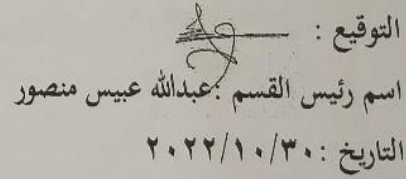 التوقيع :
اسم رئيس القسم :عبدالله عبيس منصور
التاريخ :٢٠٢٢/١٠/٣٠